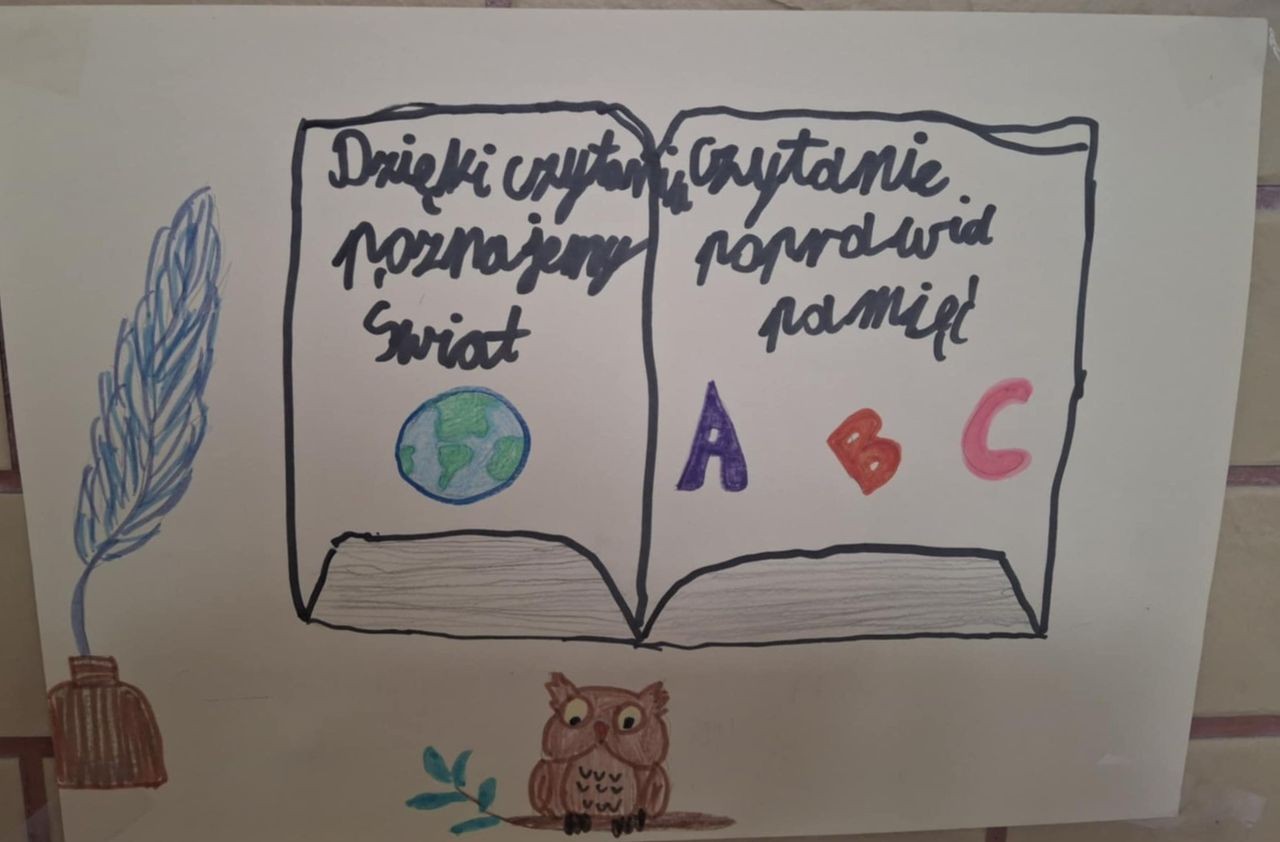 Dzięki czytaniu
poznajemy
świat
Czytanie
poprawia
pamięć
A B C